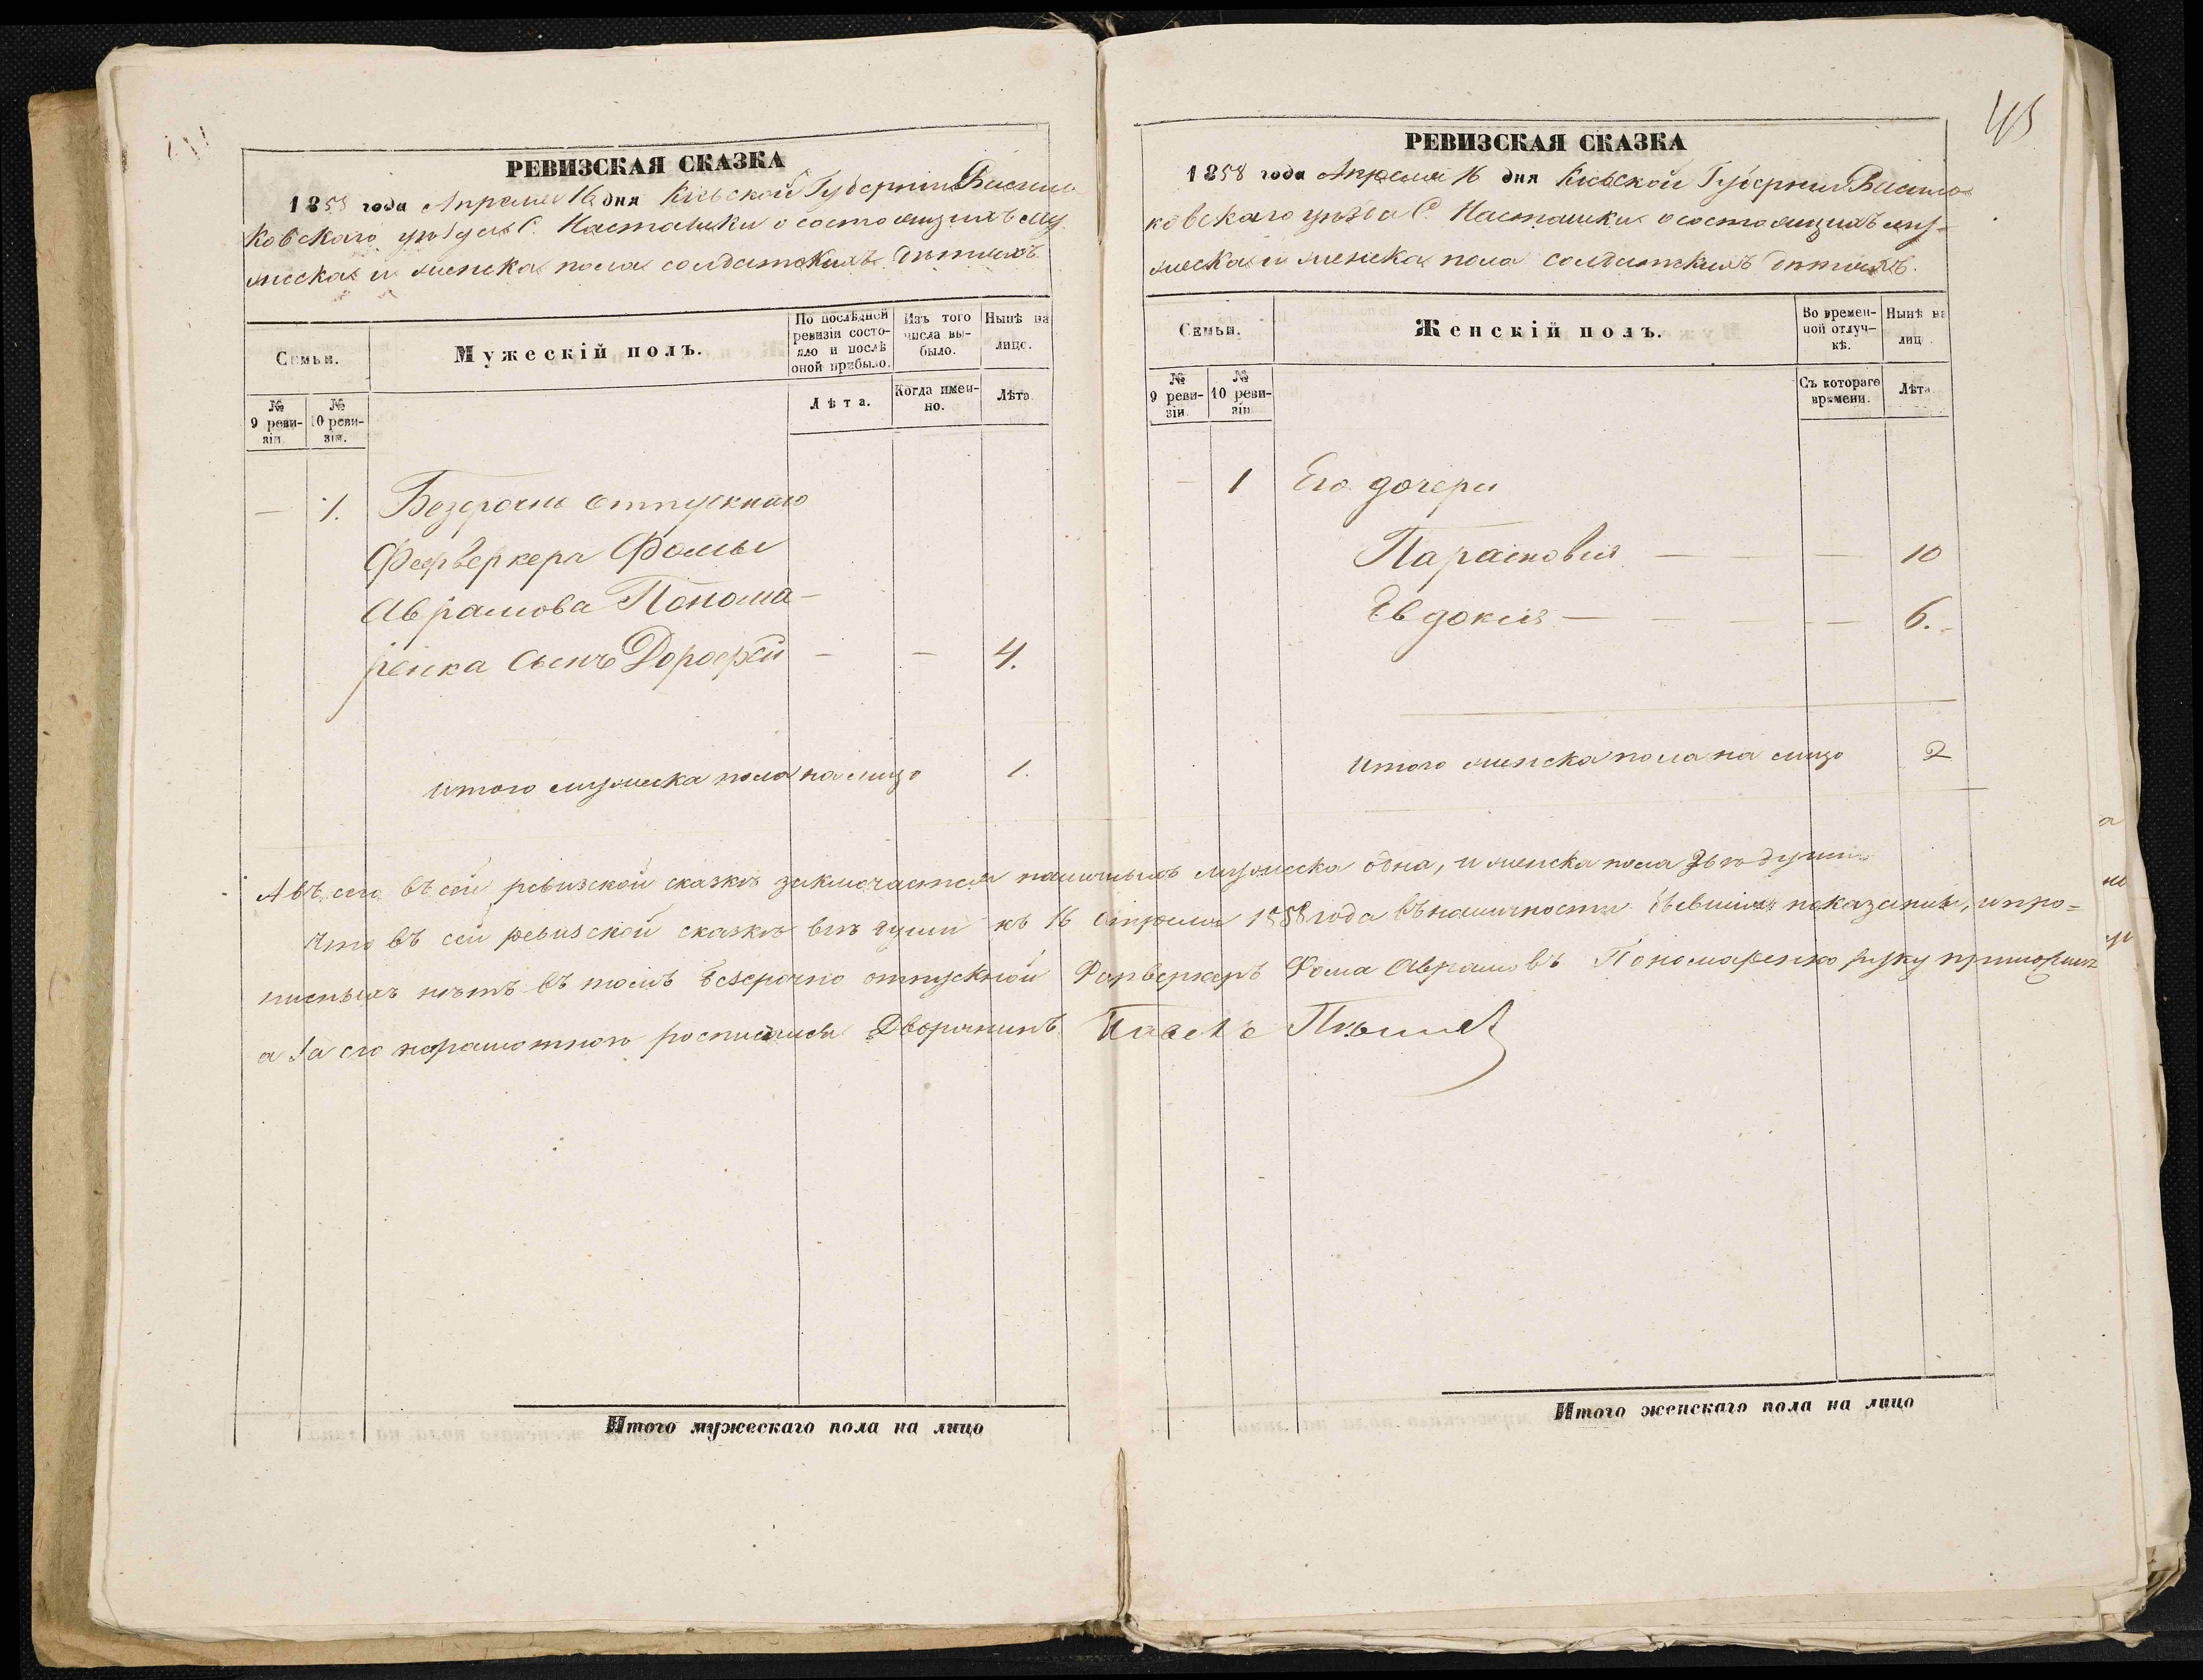 РЕВИЗСКАЯ СКАЗКА
1858 года Апреля 16 дня Кіевской Губерніи Василь
ковского уѣзда С. Насташки о состоящихъ му
жеска и женска пола солдатскихъ дѣтяхъ.
Семьи.
Мужескій полъ.
По послѣдней ревизіи состояло и послѣ оной прибыло.
Изъ того числа выбыло.
Нынѣ на лицо.
№ 9 ревизіи
№ 10 ревизіи.
Лѣта.
Когда именно.
Лѣта.
— 1. Безсрочно отпускнаго
Фейверкера Фомы
Аврамова Понома-
ренка сынъ Дорофей — — 4.
Итого мужеска пола на лицо 1.
Итого мужескаго пола на лицо
45
РЕВИЗСКАЯ СКАЗКА
1858 года Апреля 16 дня Кіевской Губерніи Василь
ковскаго уѣзда С. Насташки о состоящихъ му-
жеска и женска пола солдатскихъ дѣтяхъ.
Семьи.
Женскій полъ.
Во временной отлучкѣ.
Нынѣ на лицо.
№ 9 ревизіи
№ 10 ревизіи
Съ котораго времени.
Лѣта.
— 1 Его дочери
Парасковія — — — 10
Евдокія — — — — 6.
Итого женска пола на лицо 2
А всего въ сей ревизской сказкѣ заключается наличныхъ мужеска одна, и женска пола двѣ души
Что въ сей ревизской сказкѣ всѣ души къ 16 апреля 1858 года въ наличности показаны, и про=
писныхъ нѣтъ въ томъ безсрочно отпускной Фарверкеръ Фома Аврамовъ Пономаренко руку приложилъ
а за его неграмотного росписался Дворянинъ Павелъ
Итого женскаго пола на лицо